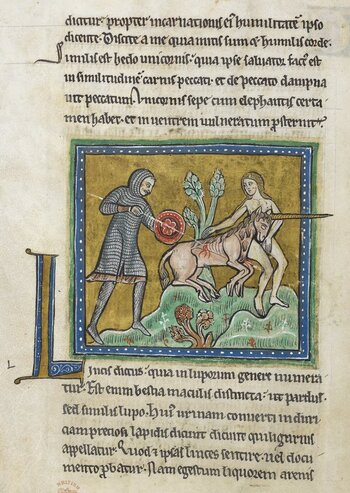 dicitur· propter incarnationis ei humilitatē ipso
dicente· Discite a me quia mitis sum & humilis corde·
similis est hedo unicornis· quia ipse salvator fact est
in similitudinē carnis peccati· et de peccato dampna
uit peccatum· Unicornis sepe cum elephantis certa
men habet· et in ventrem uulneratum prosternit·
Lincis dictus· quia in luporum genere numera
tur· Est enim bestia maculis distincta· ut pardus·
sed similis lupo· hui urinam conuerti in duri
ciam preciosi lapidis dicunt
appellatur· Quod & ipsas linces sentire· hoc docu
mento probatur· Nam egestum liquorem arenis